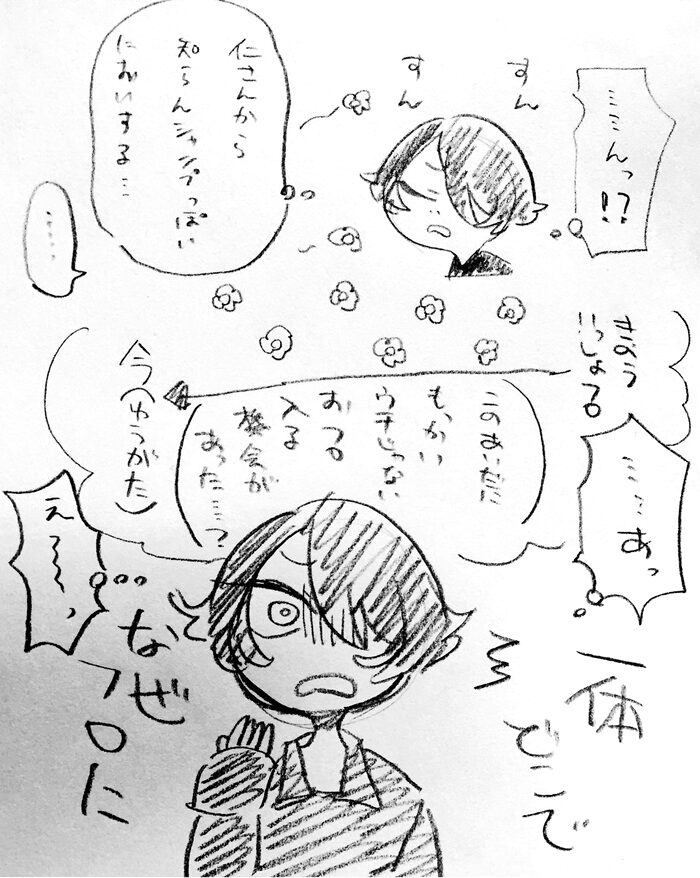 ……んっ!?
すん
すん
仁さんから
知らんシャンプっぽい
においする…
……
きのう
いっしょフロ
このあいだに
もっかい
ウチじゃない
おフロ
入る
機会が
あった…?
今(ゆうがた)
……あっ
え〜〜っ
一体
どこで
なぜ
フロに